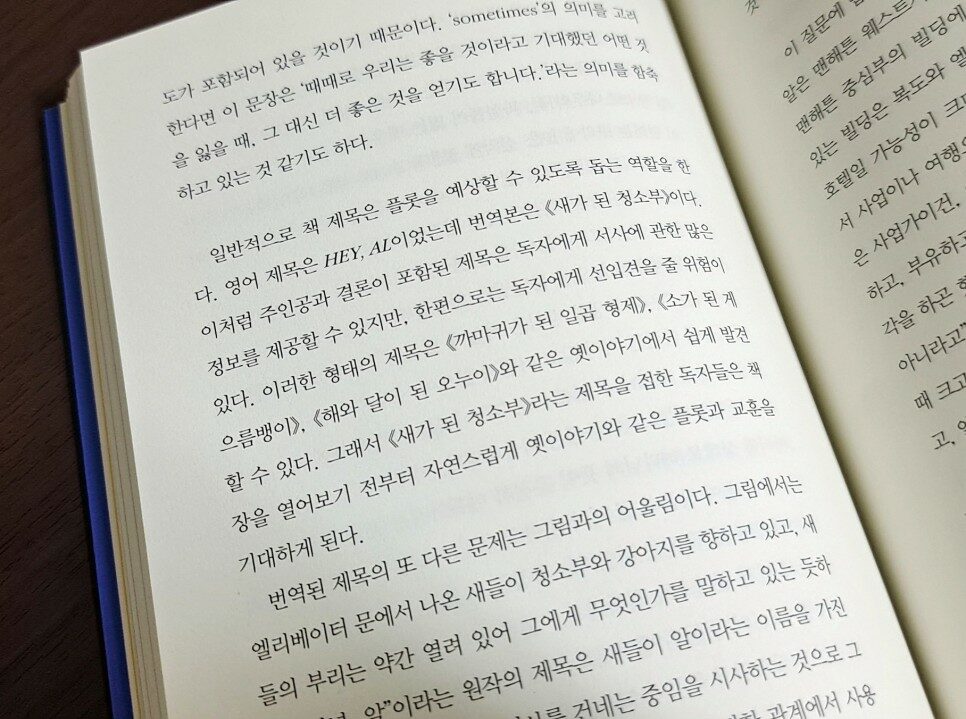 도가 포함되어 있을 것이기 때문이다. ‘sometimes’의 의미를 고려
한다면 이 문장은 ‘때때로 우리는 좋을 것이라고 기대했던 어떤 것
을 잃을 때, 그 대신 더 좋은 것을 얻기도 합니다.’라는 의미를 함축
하고 있는 것 같기도 하다.
일반적으로 책 제목은 플롯을 예상할 수 있도록 돕는 역할을 한
다. 영어 제목은 HEY, AL이었는데 번역본은 《새가 된 청소부》이다.
이처럼 주인공과 결론이 포함된 제목은 독자에게 서사에 관한 많은
정보를 제공할 수 있지만, 한편으로는 독자에게 선입견을 줄 위험이
있다. 이러한 형태의 제목은 《까마귀가 된 일곱 형제》, 《소가 된 게
으름뱅이》, 《해와 달이 된 오누이》와 같은 옛이야기에서 쉽게 발견
할 수 있다. 그래서 《새가 된 청소부》라는 제목을 접한 독자들은 책
장을 열어보기 전부터 자연스럽게 옛이야기와 같은 플롯과 교훈을
기대하게 된다.
번역된 제목의 또 다른 문제는 그림과의 어울림이다. 그림에서는
엘리베이터 문에서 나온 새들이 청소부와 강아지를 향하고 있고, 새
들의 부리는 약간 열려 있어 그에게 무엇인가를 말하고 있는 듯하
알”이라는 원작의 제목은 새들이 알이라는 이름을 가진
건네는 중임을 시사하는 것으로 그
관계에서 사용
이 질문에
알은 맨해튼 웨스트
맨해튼 중심부의 빌딩에
있는 빌딩은 복도와
호텔일 가능성이
서 사업이나 여행
은 사업가이건,
하고, 부유하고
각을 하곤
아니라고”
때 크고
고,